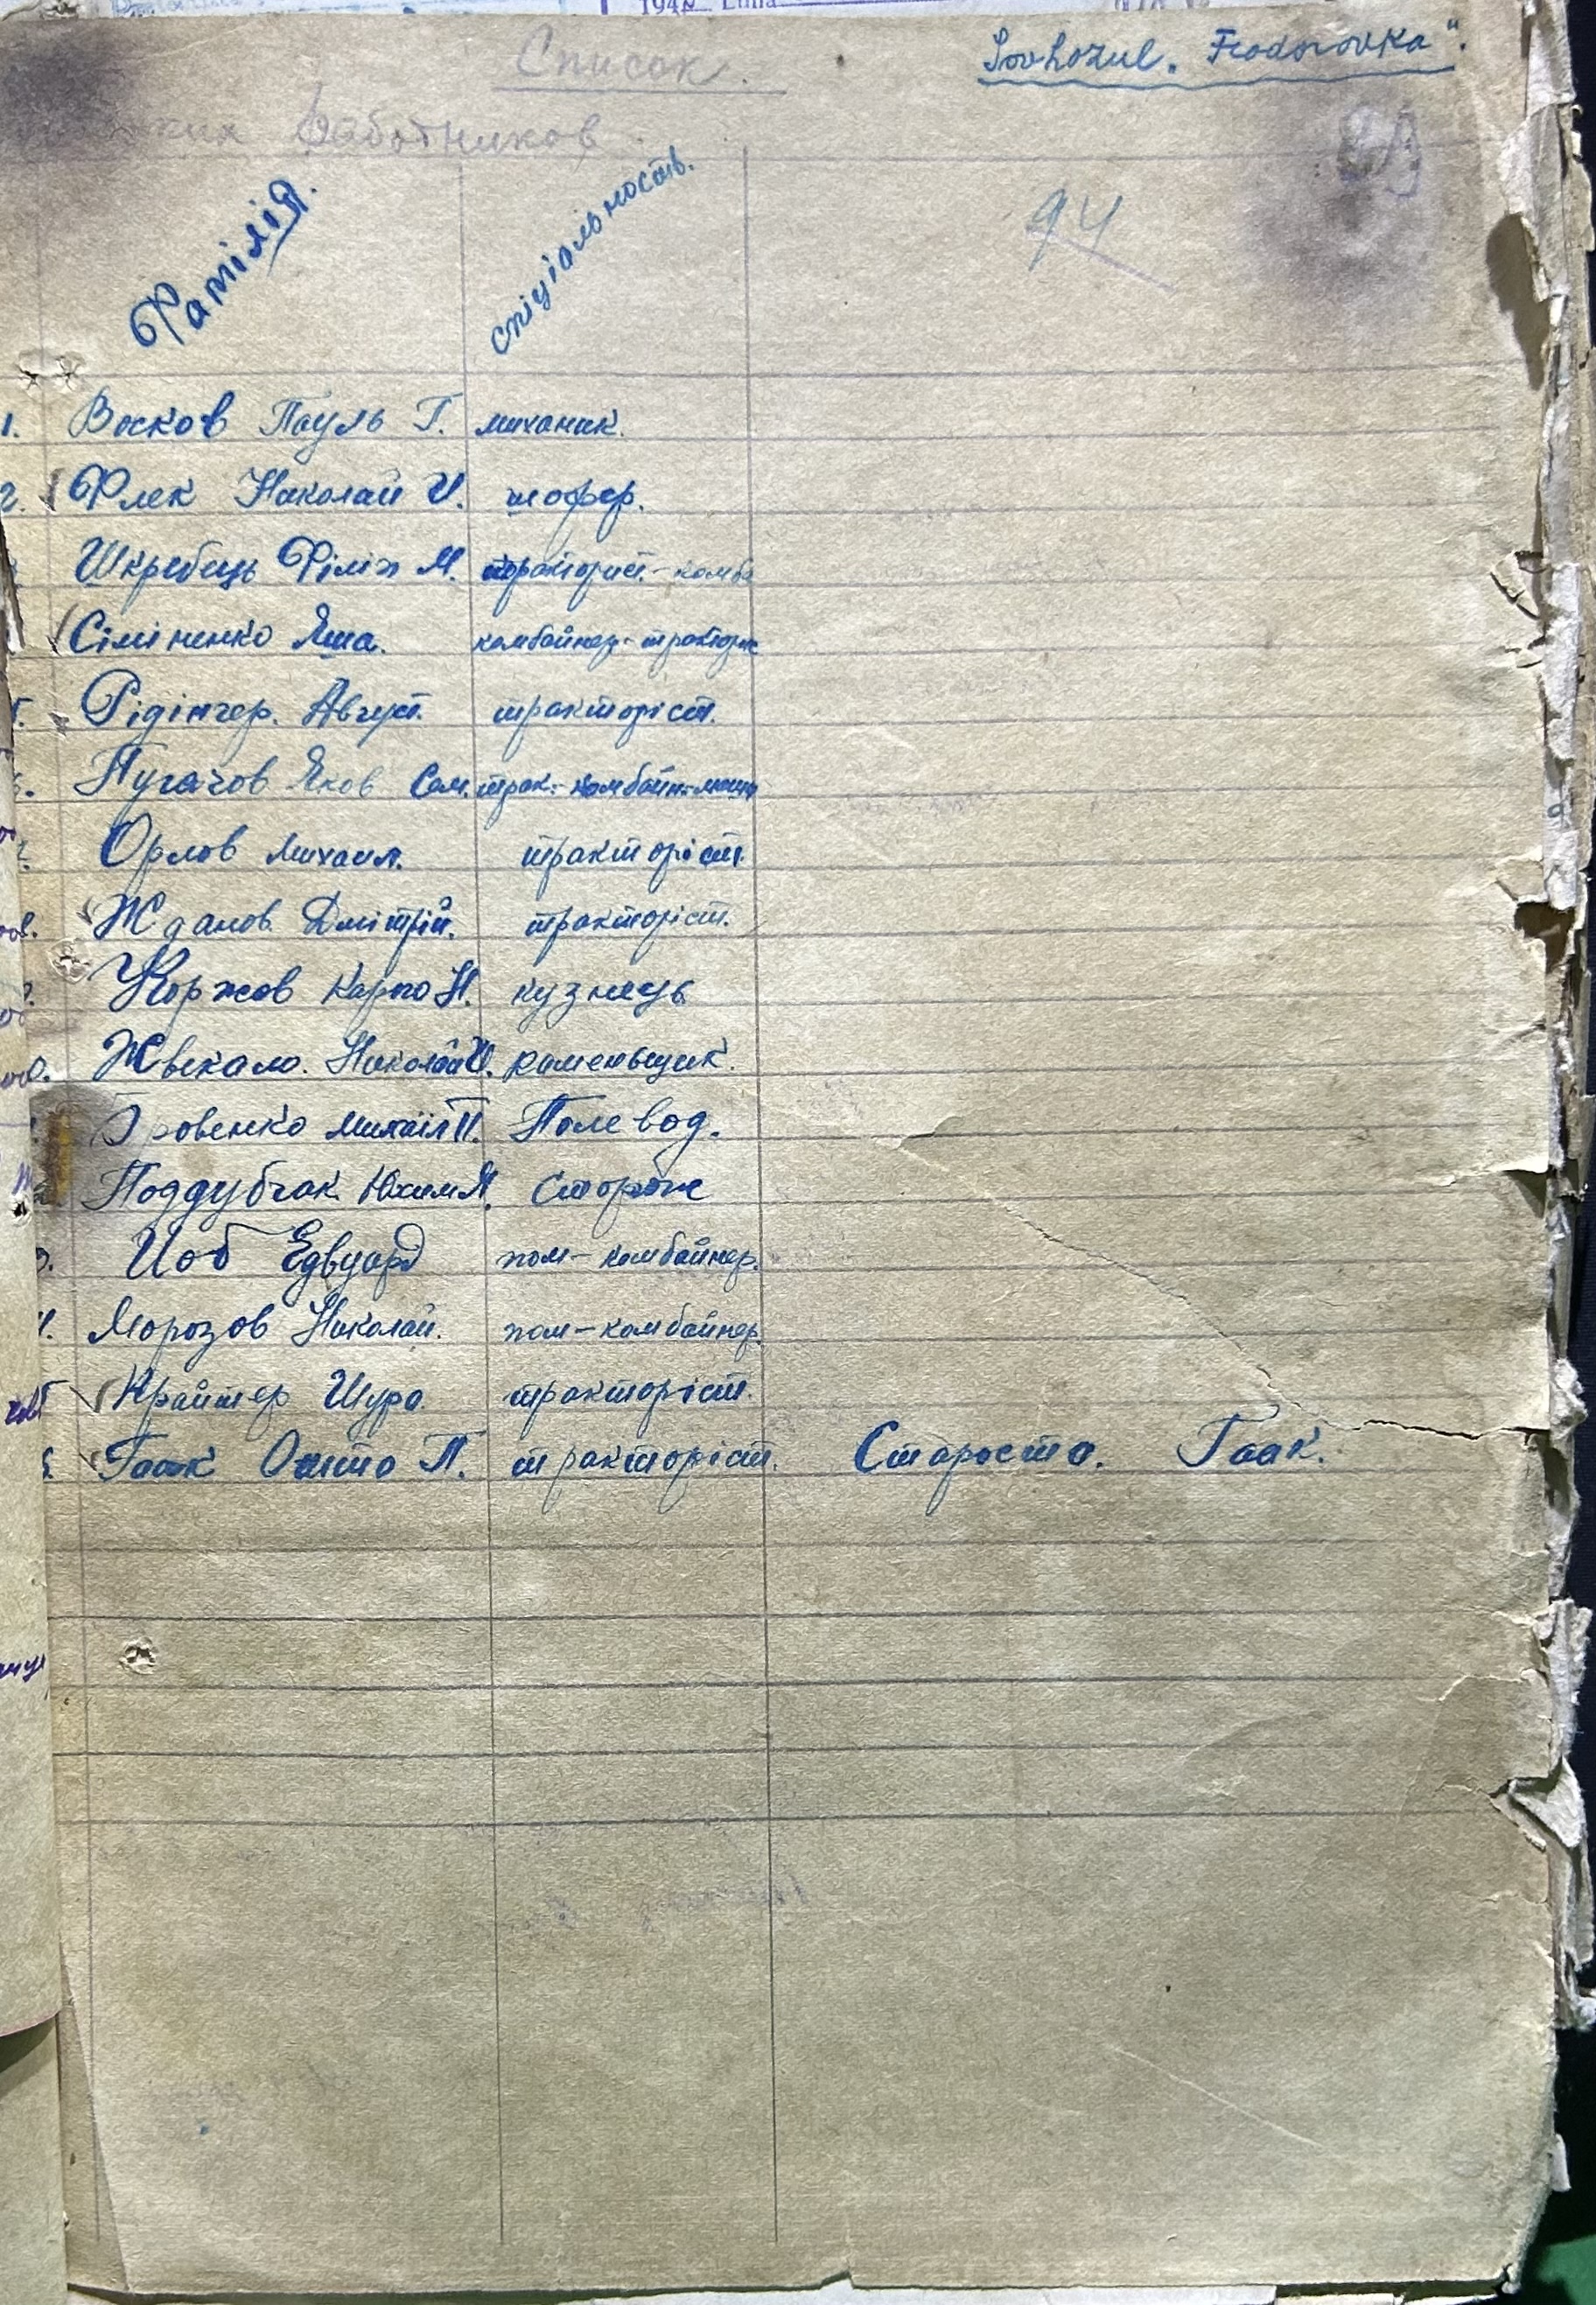 Sovhozul „Fiodorovka".
Список.
работников
Фамілія.
спіціальность.
94
1. Восков Пауль Г. миханик.
2. Флек Николай И. шофер.
Шкребець Філіп М. тракторист.-комба
Сіміненко Яша. комбайнер-тракторис
Рідінгер. Август. тракторіст.
Пугачов Яков Сам. трак.-комбайн.-маши
Орлов Михаил. тракторіст.
Жданов. Дмітрій. тракторіст.
Коржов Карпо Н. кузнець
Жвекало. Николай И. каменьщик.
ровенко михаіл П. Полевод.
Поддубчак Юхим Я. Сторож
Иоб Едвуард пом-комбайнер.
Морозов Николай. пом-комбайнер.
Крайтер Шура. тракторіст.
Гаак Отто П. тракторіст. Староста. Гаак.